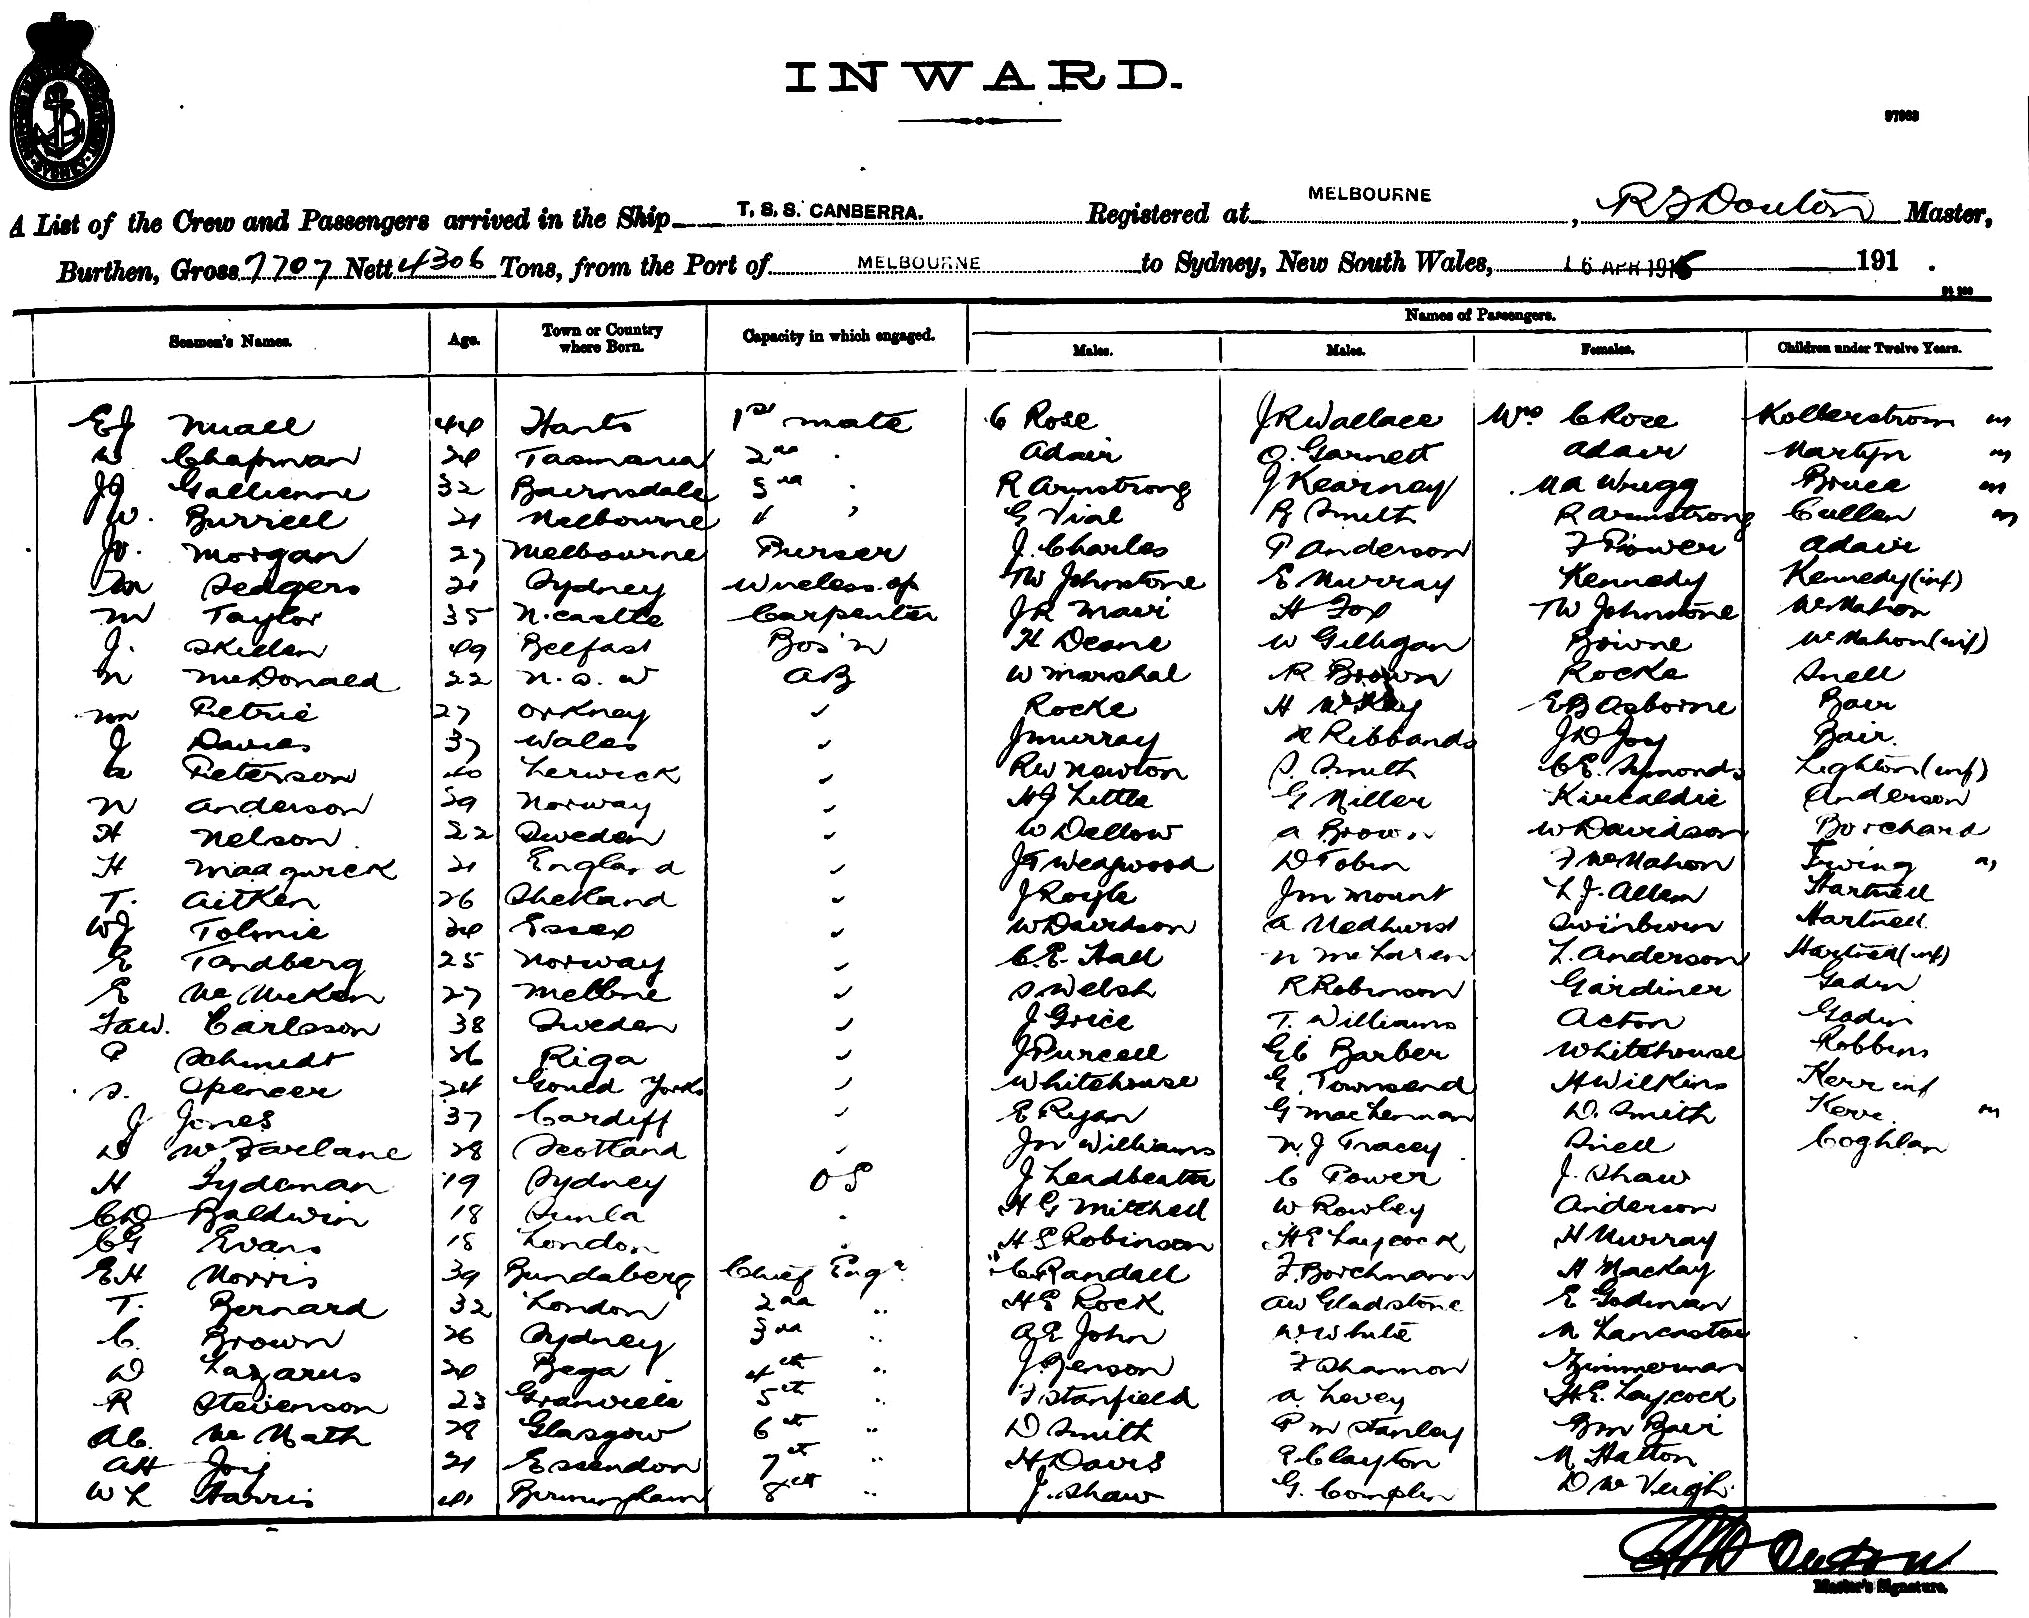 INWARD.
A List of the Crew and Passengers arrived in the Ship T. S. S. CANBERRA. Registered at MELBOURNE, Master,
Burthen, Gross 7707 Nett 4306 Tons, from the Port of MELBOURNE to Sydney, New South Wales, 16 APR 1916 191 .
Names of Passengers.
Seamen's Names. Age. Town or Country where Born. Capacity in which engaged. Males. Males. Females. Children under Twelve Years.
EJ 44 Hants 1st mate C Rose JR Wallace Mrs C Rose Kollerstrom m
Chapman Tasmania 2nd Adair O. Garnett Adair Martyn m
Gallienne 32 Bairnsdale 3rd R Armstrong J Kearney Bruce m
W. Burrell 21 Melbourne 4 G Vial Smith R Armstrong Cullen m
Morgan 27 Melbourne Purser J. Charles P Anderson F Power Adair
Sedgers 21 Sydney Wireless op TW Johnstone E Murray Kennedy Kennedy (inf)
M Taylor 35 N.castle Carpenter JR Mair H Fox TW Johnstone McMahon
J. Skillen 49 Belfast Bos'n H Deane W Gilligan Bowne McMahon (inf)
N McDonald 22 N.S.W AB W Marshal R Brown Rocke Snell
Wm Petrie 27 Orkney ✓ Rocke H McKay EB Osborne Bair
J Davies 37 Wales ✓ J Murray Ribbands JD Joy Bair.
Peterson 40 Lerwick ✓ RW Newton S. Smith CE. Symonds Lighton (inf)
N Anderson 39 Norway ✓ HJ Little G Miller Kirkaldie Anderson
H Nelson 22 Sweden ✓ W Dellow A Brown W Davidson Borchard
H Madgwick 21 England ✓ JT Wedgwood D Tobin F McMahon Irving m
T. Aitken 26 Shetland ✓ J Royle JM Mount L J. Allen Hartnell
WJ Tolmie Essex ✓ W Davidson A Medhurst Swinburn Hartnell
E Tandberg 25 Norway ✓ C.E. Hall N McLaren L. Anderson Hartnell (inf)
E McMicken 27 Melbne ✓ S Welsh R Robinson Gardiner Gadin
Carlsson 38 Sweden ✓ J Grice T. Williams Acton Gadin
P Schmidt 36 Riga ✓ J Purcell GC Barber Whitehouse Robbins
S. Spencer 24 Yorks ✓ Whitehouse G Townsend H Wilkins Kerr inf
J Jones 37 Cardiff ✓ E Ryan G MacLennan D. Smith Kerr. m
D McFarlane 28 Scotland ✓ JM Williams N.J Tracey Snell Coghlan
H Sydeman 19 Sydney OS J Leadbeater C Power J. Shaw
CD Baldwin 18 H G Mitchell W Rowley Anderson
CG Evans 18 London H S Robinson HE Laycock H Murray
EH Norris 39 Bundaberg Chief Engr C Randall F. Borchmann H Mackay
T. Bernard 32 London 2nd " HE Rock AW Gladstone E Godman
C. Brown 26 Sydney 3rd " A E John W. White M Lancaster
D Lazarus Bega 4th " J. Gerson F Shannon Zimmerman
R Stevenson 23 Granville 5th " F Stanfield A. Levey H.E. Laycock
AC. McMath 28 Glasgow 6th " D Smith P M Stanley
AH Joy 21 Essendon 7th " H Davis E Clayton M Hatton
W L Harris 41 Birmingham 8th " J. Shaw G. Complin D McVeigh.
Master's Signature.